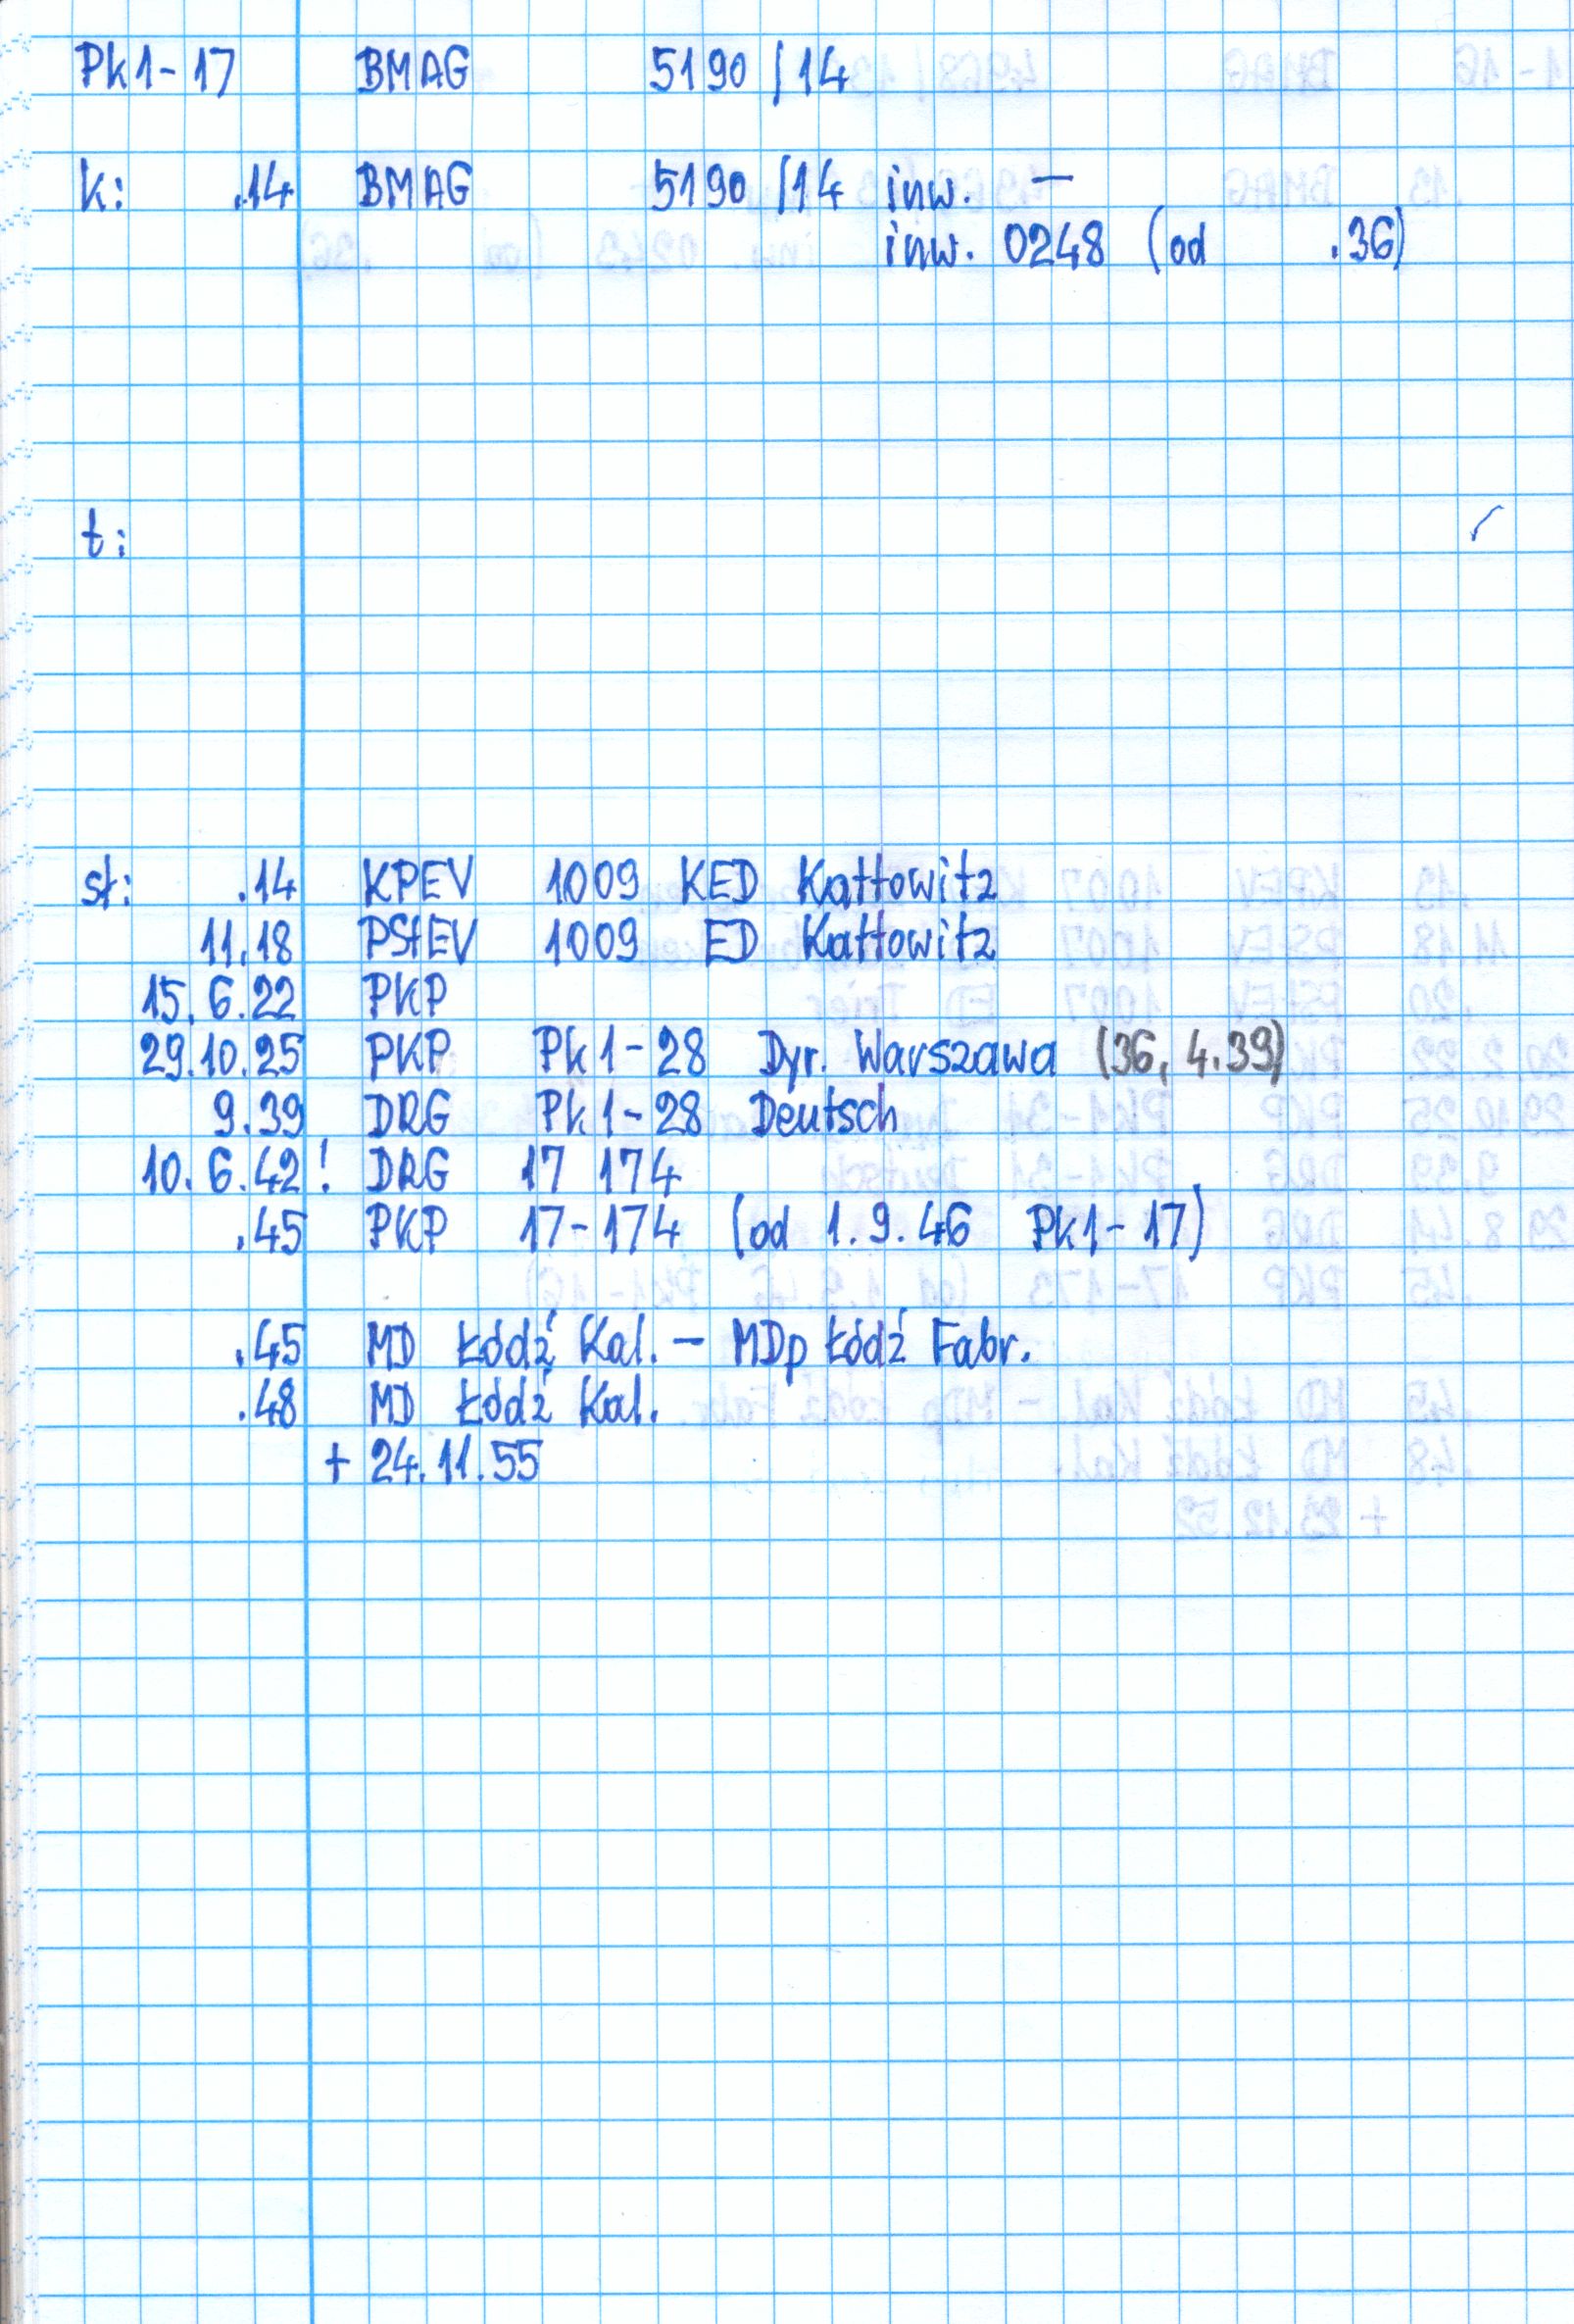 Pk1-17 BMAG 5190/14
k: .14 BMAG 5190/14 inw. —
inw. 0248 (od .36)
t:
st: .14 KPEV 1009 KED Kattowitz
11.18 PStEV 1009 ED Kattowitz
15.6.22 PKP
29.10.25 PKP Pk1-28 Dyr. Warszawa (36, 4.39)
9.39 DRG Pk1-28 Deutsch
10.6.42! DRG 17 174
.45 PKP 17-174 (od 1.9.46 Pk1-17)
.45 MD Łódź Kal. - MDp Łódź Fabr.
.48 MD Łódź Kal.
+ 24.11.55